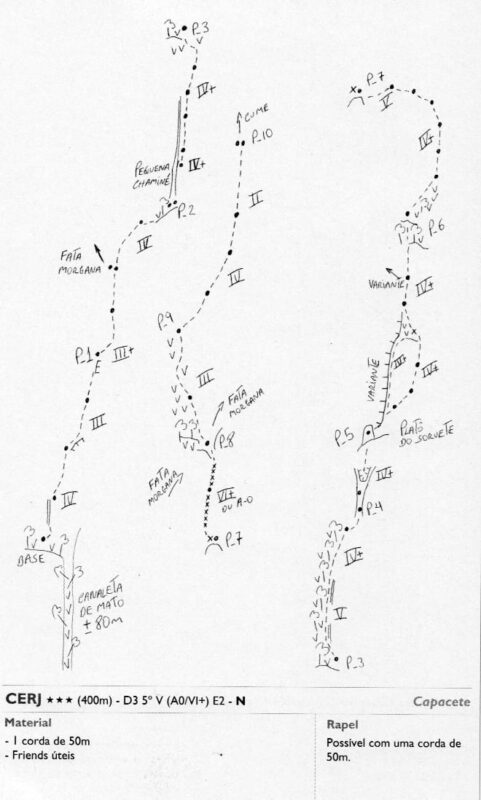 P_3
IV+
PEQUENA
CHAMINÉ
P_2
IV
FATA
MORGANA
P_1
E
III+
III
IV
BASE
CANALETA
DE MATO
± 80m
CUME
P_10
II
IV
P_9
III
FATA
MORGANA
P_8
FATA
MORGANA
VI+
OU A-0
P_7
P_7
V
IV+
P_6
VARIANTE
IV+
VARIANTE
IV+
IV+
P_5
PLATÔ
DO SORVETE
IV+
P_4
IV+
V
P_3
CERJ ★★★ (400m) - D3 5º V (A0/VI+) E2 - N
Capacete
Material
- 1 corda de 50m
- Friends úteis
Rapel
Possivel com uma corda de
50m.